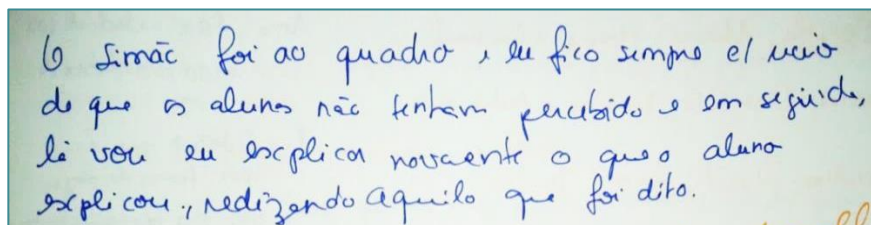 O Simão foi ao quadro e eu fico sempre c/ receio
de que os alunos não tenham percebido e em seguida,
lá vou eu explicar novaente o que o aluno
explicou, redizendo aquilo que foi dito.